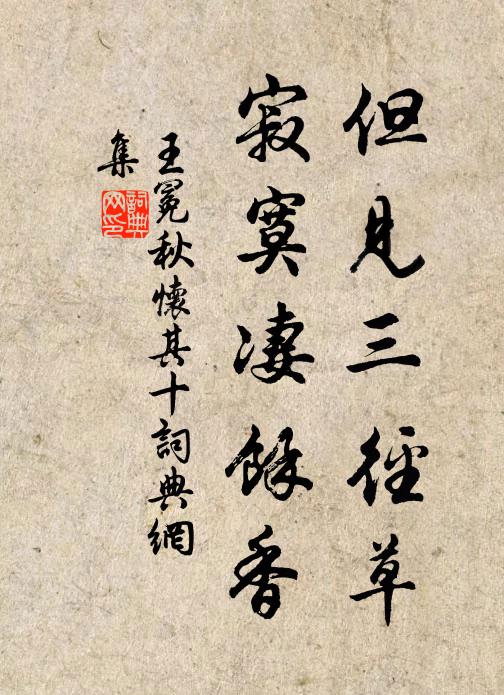 但見三徑草
寂寞淒餘香
王冕秋懷其十詞典網
集
詞典网印